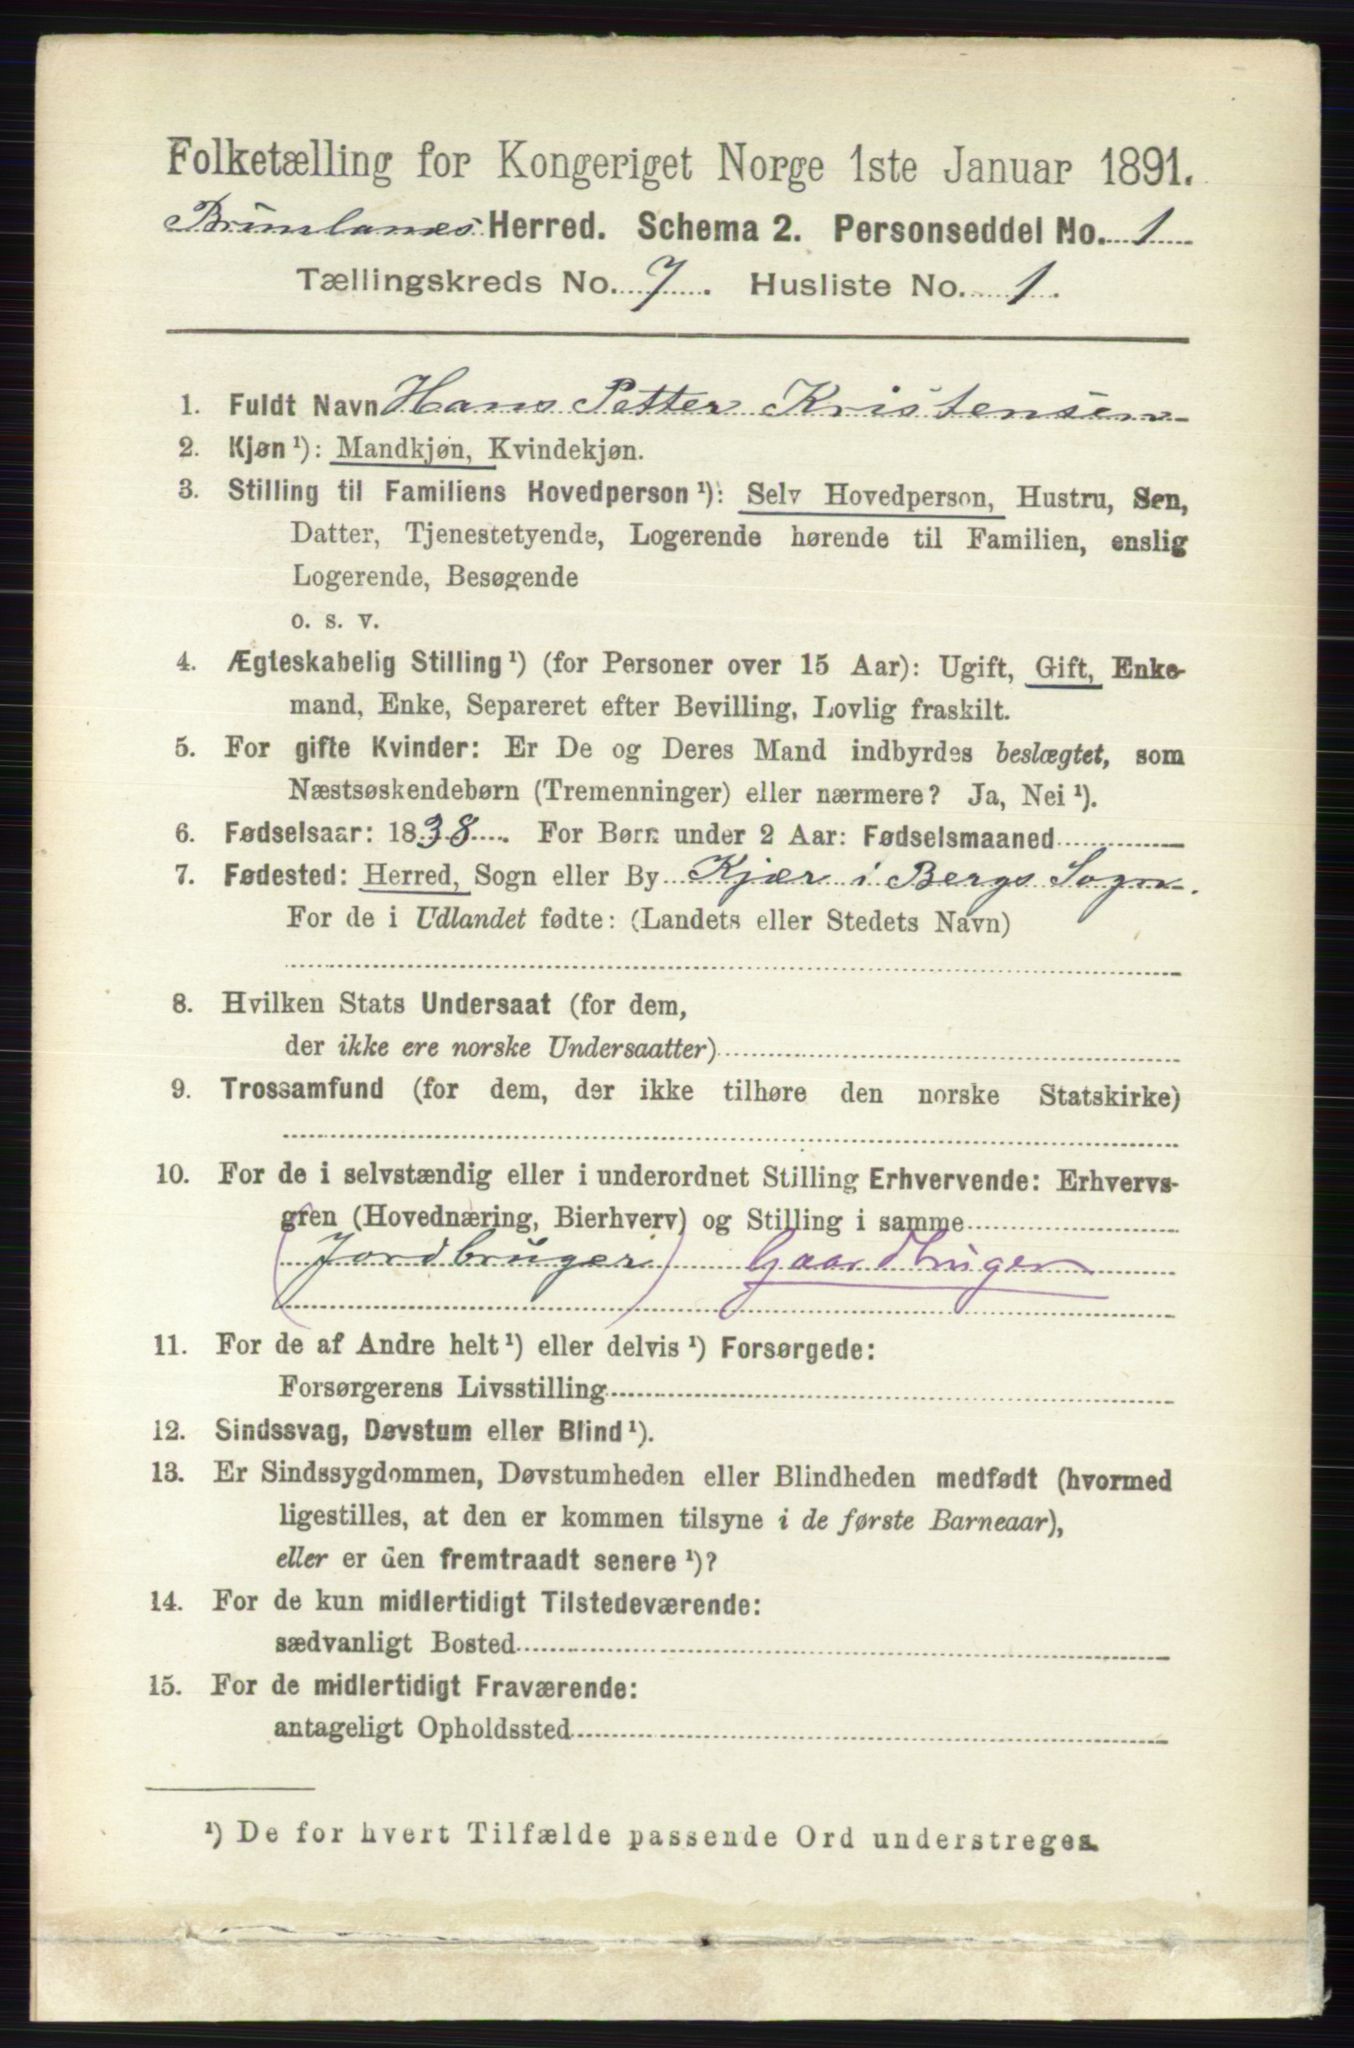 Folketælling for Kongeriget Norge 1ste Januar 1891.
Brunlanes Herred. Schema 2. Personseddel No. 1
Tællingskreds No. 7. Husliste No. 1.
1. Fuldt Navn Hans Petter Kristensen
2. Kjøn ¹): Mandkjøn, Kvindekjøn.
3. Stilling til Familiens Hovedperson ¹): Selv Hovedperson, Hustru, Søn,
Datter, Tjenestetyende, Logerende hørende til Familien, enslig
Logerende, Besøgende
o. s. v.
4. Ægteskabelig Stilling ¹) (for Personer over 15 Aar): Ugift, Gift, Enke-
mand, Enke, Separeret efter Bevilling, Lovlig fraskilt.
5. For gifte Kvinder: Er De og Deres Mand indbyrdes beslægtet, som
Næstsøskendebørn (Tremenninger) eller nærmere? Ja, Nei ¹).
6. Fødselsaar: 1838. For Børn under 2 Aar: Fødselsmaaned
7. Fødested: Herred, Sogn eller By Kjær i Bergs Sogn.
For de i Udlandet fødte: (Landets eller Stedets Navn)
8. Hvilken Stats Undersaat (for dem,
der ikke ere norske Undersaatter)
9. Trossamfund (for dem, der ikke tilhøre den norske Statskirke)
10. For de i selvstændig eller i underordnet Stilling Erhvervende: Erhvervs-
gren (Hovednæring, Bierhverv) og Stilling i samme
(Jordbruger) Gaardbruger
11. For de af Andre helt ¹) eller delvis ¹) Forsørgede:
Forsørgerens Livsstilling
12. Sindssvag, Døvstum eller Blind ¹).
13. Er Sindssygdommen, Døvstumheden eller Blindheden medfødt (hvormed
ligestilles, at den er kommen tilsyne i de første Barneaar),
eller er den fremtraadt senere ¹)?
14. For de kun midlertidigt Tilstedeværende:
sædvanligt Bosted
15. For de midlertidigt Fraværende:
antageligt Opholdssted
¹) De for hvert Tilfælde passende Ord understreges.